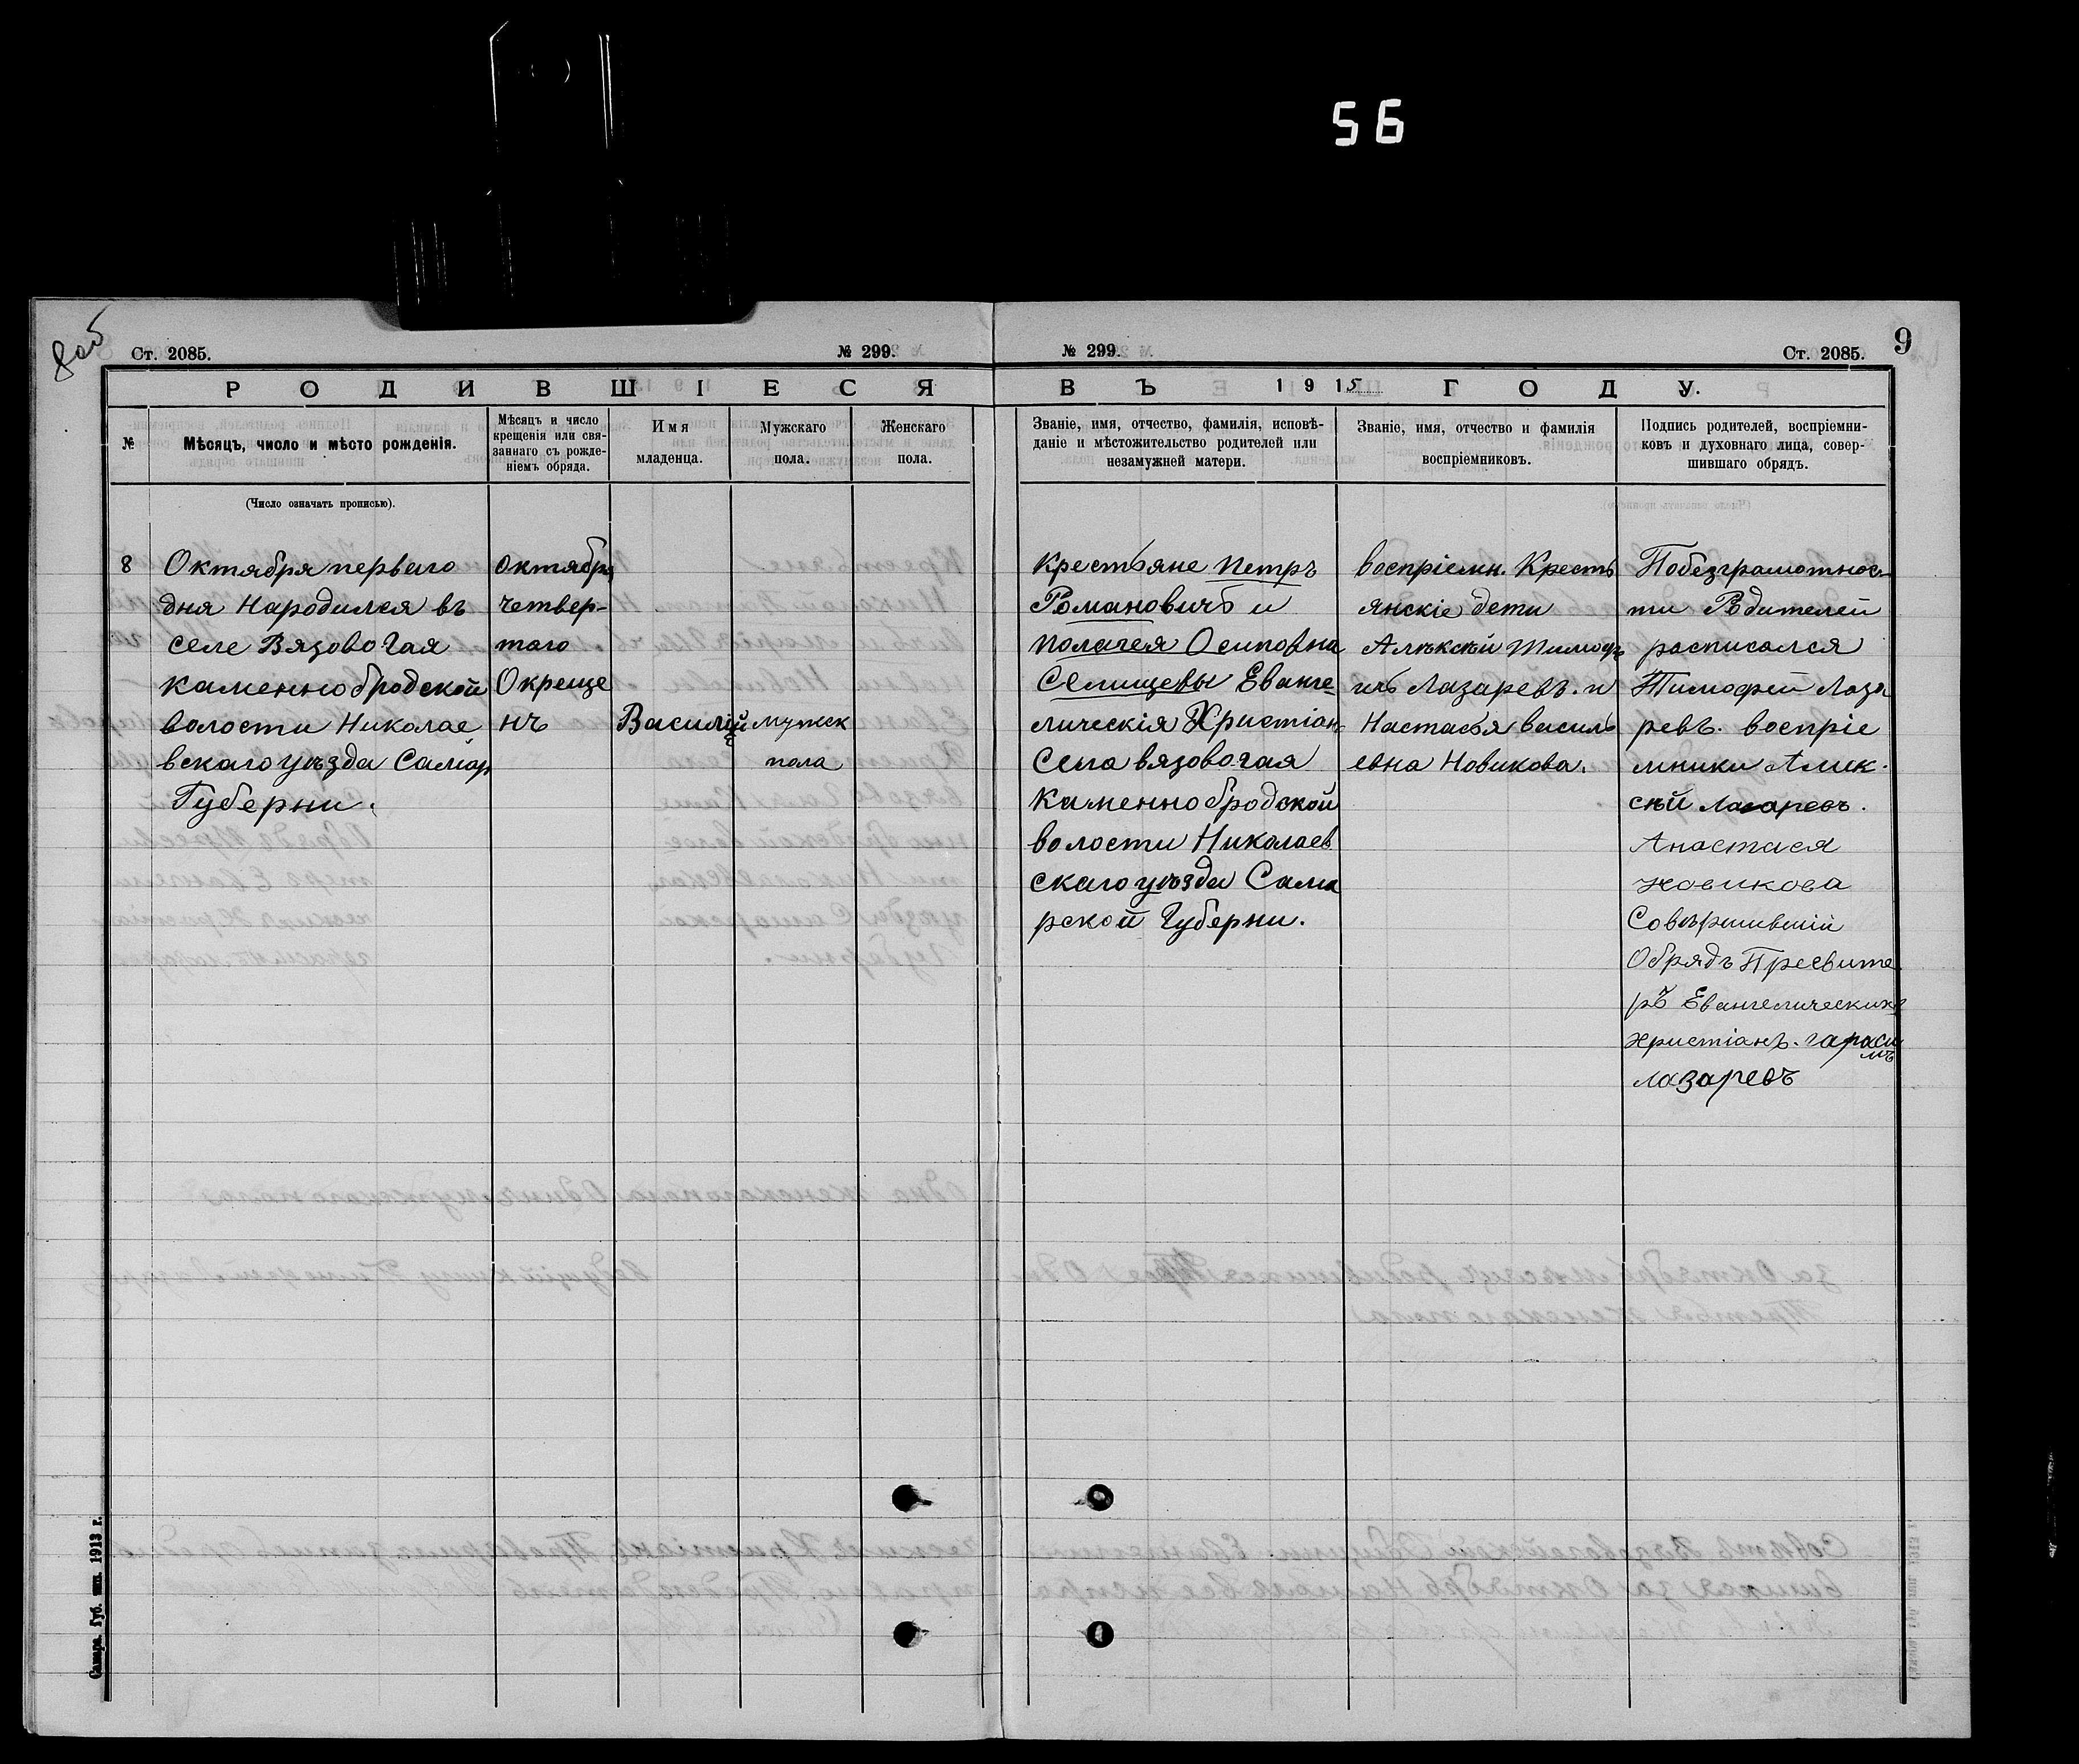 56
8об
Ст. 2085.
№ 299.
№ 299.
Ст. 2085.
9
РОДИВШІЕСЯ
ВЪ 1915 ГОДУ.
№
Мѣсяцъ, число и мѣсто рожденія.
Мѣсяцъ и число
крещенія или свя-
заннаго съ рожде-
ніемъ обряда.
Имя
младенца.
Мужскаго
пола.
Женскаго
пола.
Званіе, имя, отчество, фамилія, исповѣ-
даніе и мѣстожительство родителей или
незамужней матери.
Званіе, имя, отчество и фамилія
воспріемниковъ.
Подпись родителей, воспріемни-
ковъ и духовнаго лица, совер-
шившаго обрядъ.
(Число означать прописью).
8
Октября перваго
дня Народился въ
селе Вязово Гая
каменнобродской
волости Николае
вскаго уѣзда Самар
Губерни.
Октября
четвер-
таго
Окреще
нъ
Василій
мужск
пола
Крестьяне Петръ
Романовичъ и
Полагея Осиповна
Селищевы Еванге
лическія Христіан
Села вязовагая
Каменнобродской
волости Николаев
скаго уѣзда Сама
рской Губерни.
воспріемн. Кресть
янскіе дети
Алѣксѣй Тимоф
ичъ Лазаревъ. и
Настасья василь
евна Новикова.
Побезграмотнос-
ти Родителей
расписался
Тимофей Лаза
ревъ. воспріе
мники Алек-
сѣй Лазаревъ.
Анастасея
Новикова
Совѣршившій
Обрядъ Пресвите
ръ Евангелическихъ
христіанъ. гараси
мъ
лазаревъ
Самара. Губ. тип. 1913 г.